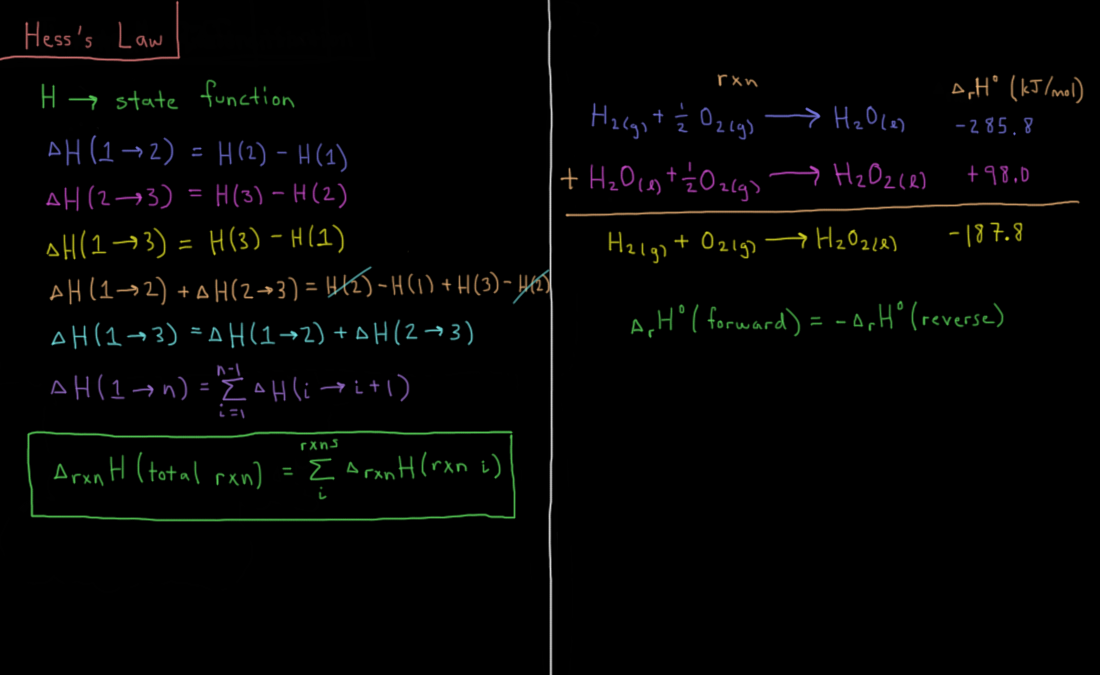 Hess's Law
H → state function
ΔH(1→2) = H(2) - H(1)
ΔH(2→3) = H(3) - H(2)
ΔH(1→3) = H(3) - H(1)
ΔH(1→2) + ΔH(2→3) = H(2) - H(1) + H(3) - H(2)
ΔH(1→3) = ΔH(1→2) + ΔH(2→3)
ΔH(1→n) = Σᵢ₌₁ⁿ⁻¹ ΔH(i→i+1)
Δrxn H(total rxn) = Σᵢ^rxns Δrxn H(rxn i)
rxn ΔᵣH° (kJ/mol)
H₂(g) + ½ O₂(g) → H₂O(ℓ) -285.8
+ H₂O(ℓ) + ½ O₂(g) → H₂O₂(ℓ) +98.0
H₂(g) + O₂(g) → H₂O₂(ℓ) -187.8
ΔᵣH°(forward) = -ΔᵣH°(reverse)